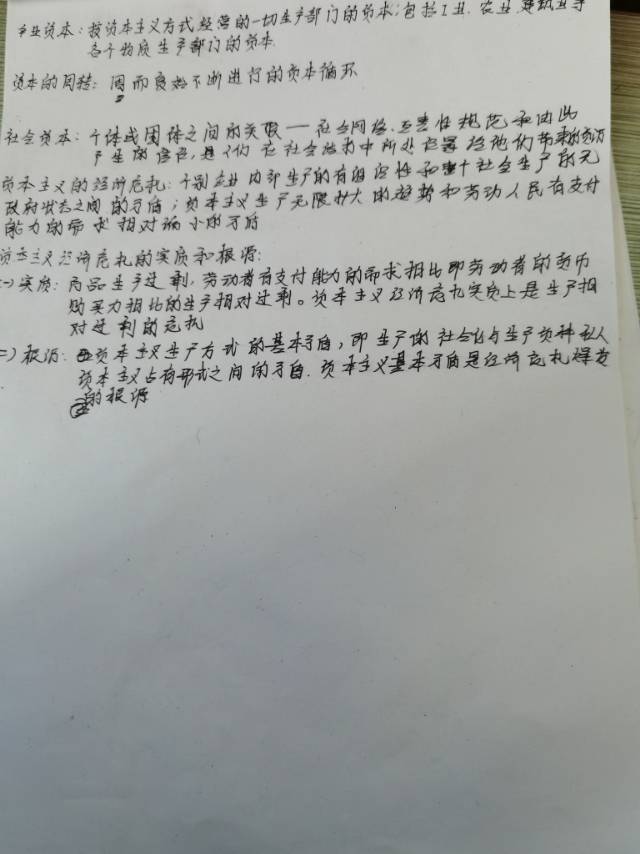 产业资本：按资本主义方式经营的一切生产部门的资本，包括工业、农业、建筑业等
各个物质生产部门的资本
资本的周转：周而复始不断进行的资本循环
社会资本：个体或团体之间的关联——社会网络、互惠性规范和由此
产生的信任，是人们在社会结构中所处位置给他们带来的资源
资本主义的经济危机：个别企业内部生产的有组织性和整个社会生产的无
政府状态之间的矛盾；资本主义生产无限扩大的趋势和劳动人民有支付
能力的需求相对缩小的矛盾
资本主义经济危机的实质和根源：
一）实质：商品生产过剩，劳动者有支付能力的需求相比即劳动者的货币
购买力相比的生产相对过剩。资本主义经济危机实质上是生产相
对过剩的危机
二）根源：资本主义生产方式的基本矛盾，即生产的社会化与生产资料私人
资本主义占有形式之间的矛盾．资本主义基本矛盾是经济危机爆发
的根源